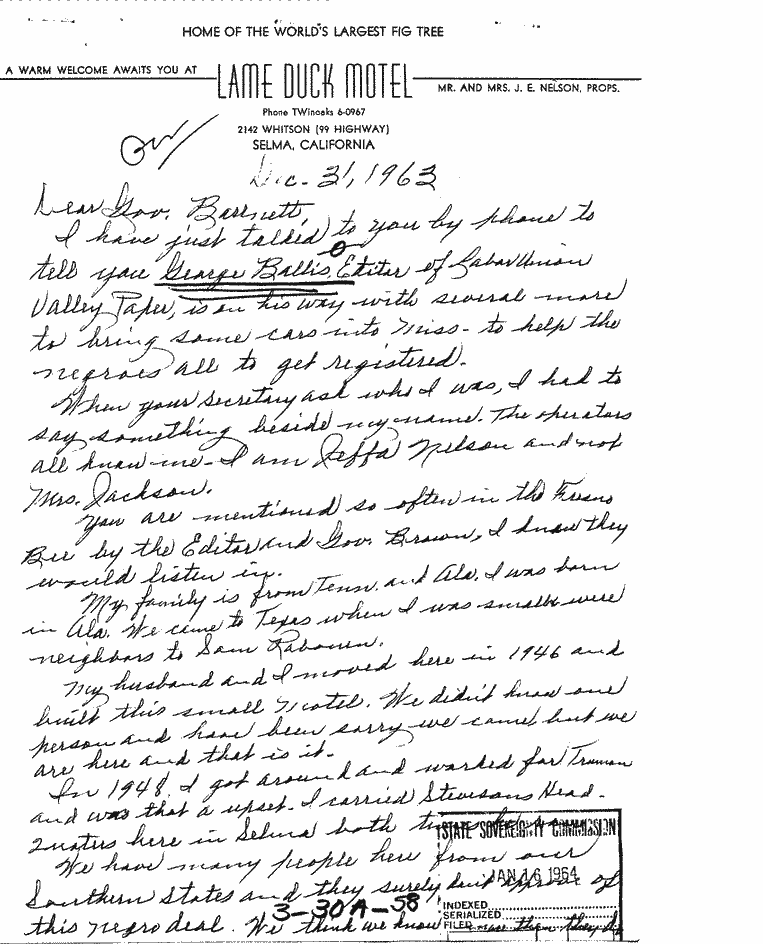 HOME OF THE WORLD'S LARGEST FIG TREE
A WARM WELCOME AWAITS YOU AT
LAME DUCK MOTEL
MR. AND MRS. J. E. NELSON, PROPS.
Phone TWinoaks 6-0967
2142 WHITSON (99 HIGHWAY)
SELMA, CALIFORNIA
Dec. 31, 1963
Dear Gov. Barnett,
I have just talked to you by phone to
tell you George Ballis, Editor of Labor Union
Valley Paper, is on his way with several more
to bring some cars into Miss- to help the
negroes all to get registered.
When your secretary ask who I was, I had to
say something beside my name. The operators
all know me - I am Jeffa Nelson and not
Mrs. Jackson.
You are mentioned so often in the Fresno
Bee by the Editor and Gov. Brown, I knew they
would listen in.
My family is from Tenn. and Ala. I was born
in Ala. We came to Texas when I was small were
neighbors to Sam
My husband and I moved here in 1946 and
built this small Motel. We didn't know one
person and have been sorry we came but we
are here and that is it.
In 1948 I got around and worked for Truman
and was that a upset. I carried Stevesons Head-
quaters here in Selma both
We have many people here from our
Southern States and they surely don't approve of
this negro deal. We think we know more than they do
STATE SOVEREIGNTY COMMISSION
JAN 16 1964
INDEXED
SERIALIZED
FILED
3-30A-58